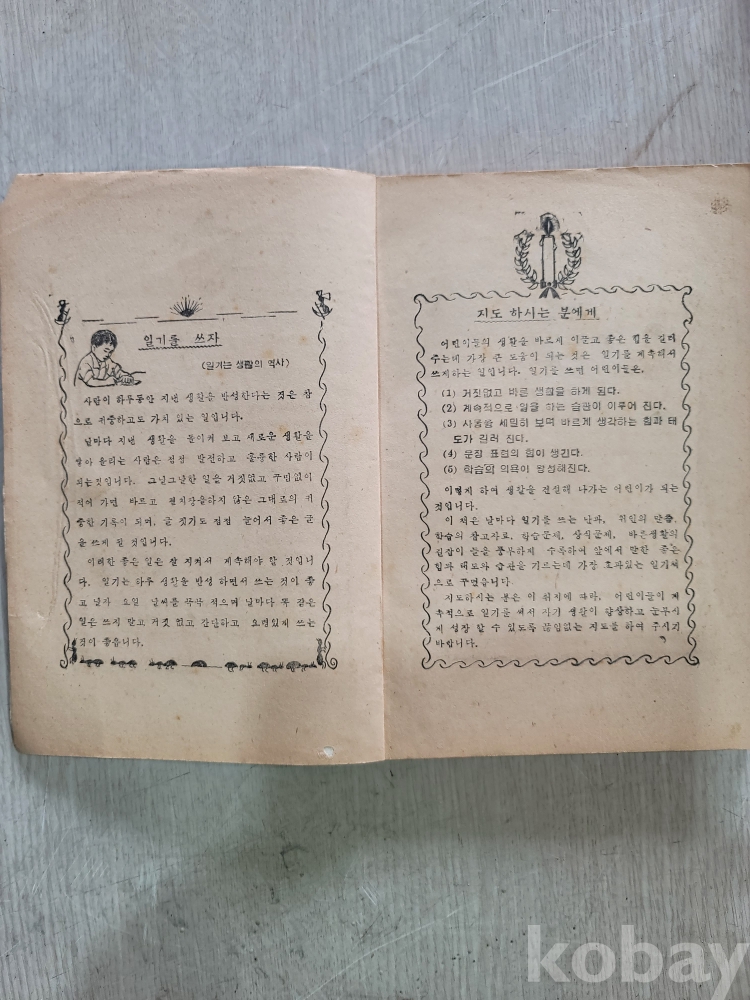 일기를 쓰자
(일기는 생활의 역사)
사람이 하루동안 지낸 생활을 반성한다는 것은 참
으로 귀중하고도 가치 있는 일입니다.
날마다 지낸 생활을 돌이켜 보고 새로운 생활을
쌓아 올리는 사람은 점점 발전하고 훌륭한 사람이
되는것입니다. 그날그날한 일을 거짓없고 꾸밈없이
적어 가면 바르고 있는 그대로의 귀
중한 기록이 되며, 글 짓기도 점점 늘어서 좋은 글
을 쓰게 될 것입니다.
이러한 좋은 일은 잘 지켜서 계속해야 할 것입니
다. 일기는 하루 생활을 반성 하면서 쓰는 것이 좋
고 날자 요일 날씨를 꼭꼭 적으며 날마다 똑 같은
일은 쓰지 말고 거짓 없고 간단하고 요령있게 쓰는
것이 좋습니다.
지도 하시는 분에게
어린이들의 생활을 바르게 이끌고 좋은 힘을 길러
주는데 가장 큰 도움이 되는 것은 일기를 계속해서
쓰게하는 일입니다. 일기를 쓰면 어린이들은,
(1) 거짓없고 바른 생활을 하게 된다.
(2) 계속적으로 일을 하는 습관이 이루어 진다.
(3) 사물을 세밀히 보며 바르게 생각하는 힘과 태
도가 길러 진다.
(4) 문장 표현의 힘이 생긴다.
(5) 학습의 의욕이 왕성해진다.
이렇게 하여 생활을 건설해 나가는 어린이가 되는
것입니다.
이 책은 날마다 일기를 쓰는 난과, 위인의 말씀,
학습의 참고자료, 학습문제, 상식문제, 바른생활의
길잡이 들을 풍부하게 수록하여 앞에서 말한 좋은
힘과 태도와 습관을 기르는데 가장 효과있는 일기책
으로 꾸몄습니다.
지도하시는 분은 이 취지에 따라, 어린이들이 계
속적으로 일기를 써서 자기 생활이 향상하고 눈부시
게 성장 할 수 있도록 끊임없는 지도를 하여 주시기
바랍니다.
kobay